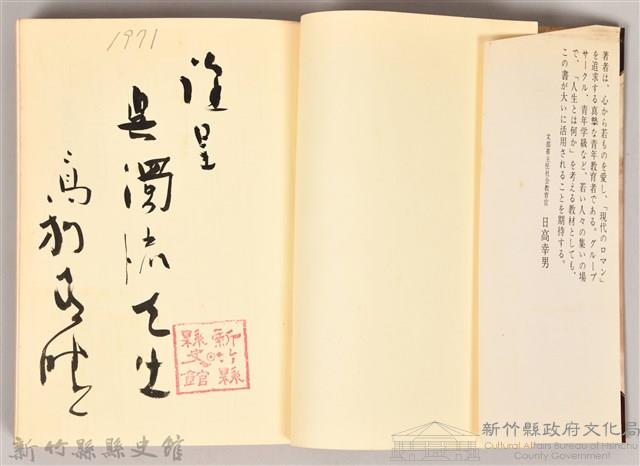 著者は、心から若ものを愛し、「現代のロマン」
を追求する真摯な青年教育者である。グループ
サークル、青年学級など、若い人々の集いの場
で、「人生とは何か」を考える教材としても、
この書が大いに活用されることを期待する。
文部省主任社会教育官 日高幸男
1971
謹呈
呉濁流先生
新竹縣
縣史館
新竹縣縣史館
新竹縣政府文化局
Cultural Affairs Bureau of Hsinchu
County Government